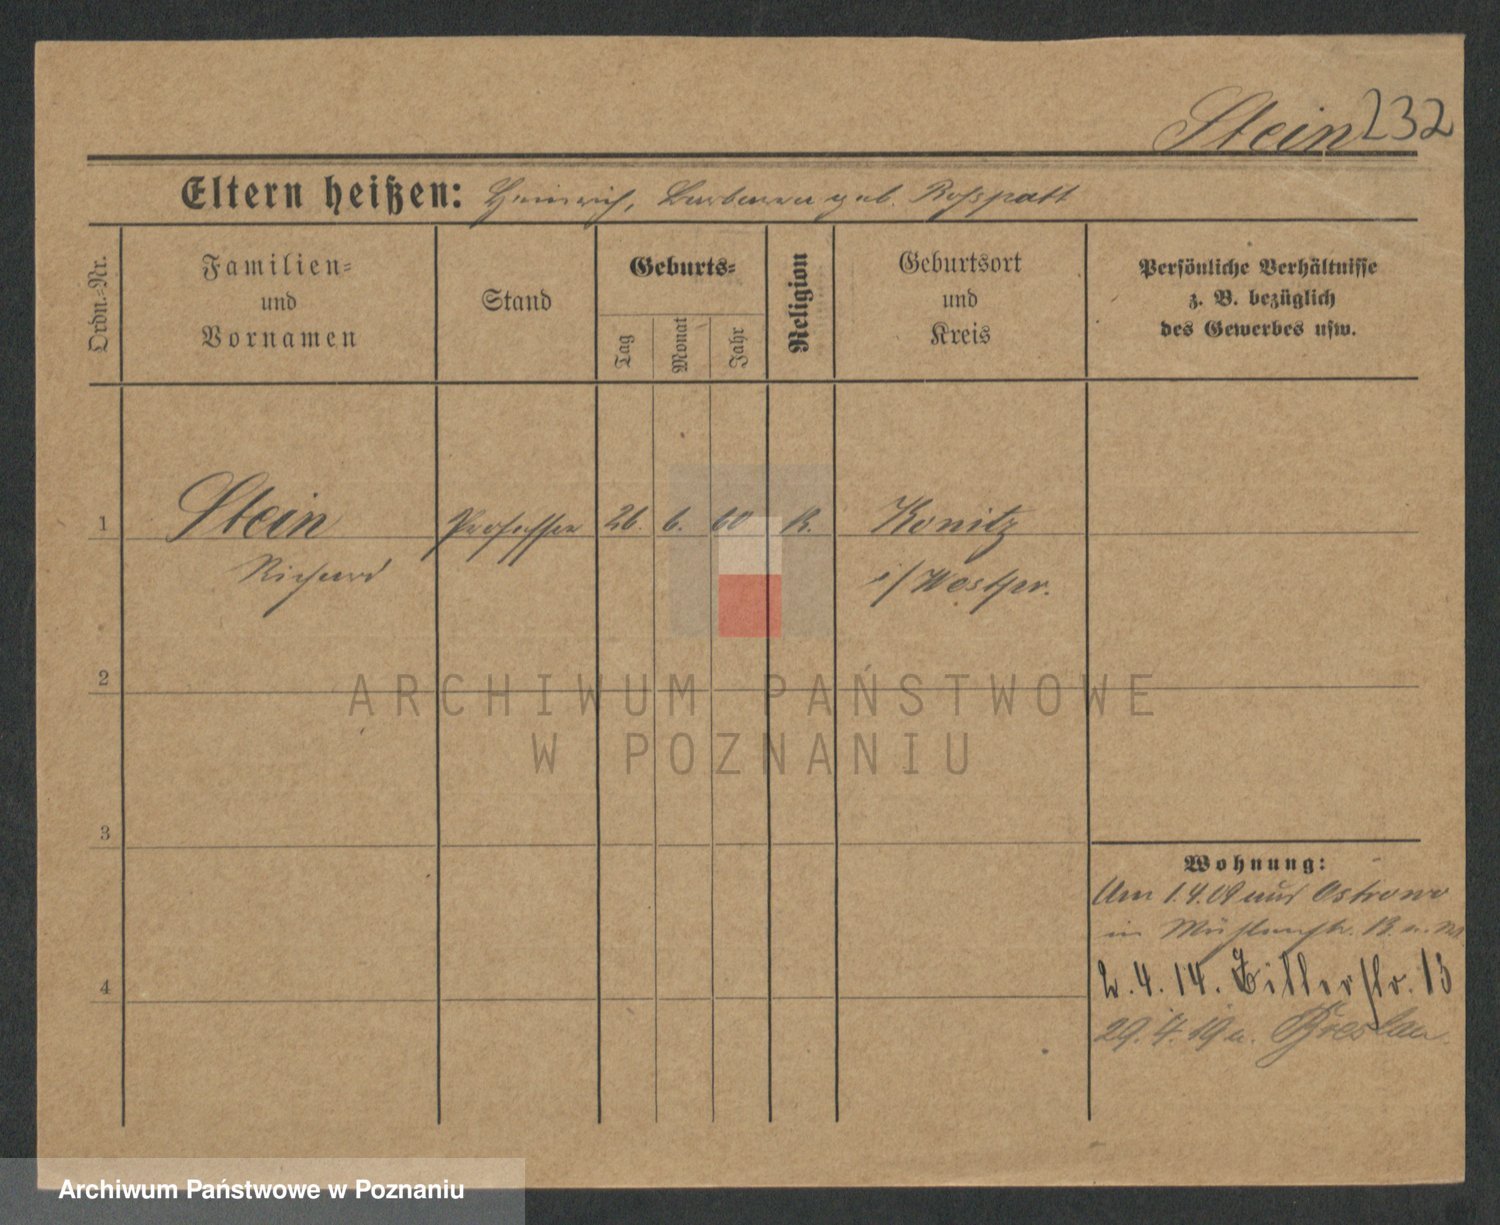 Stein 232
Eltern heißen: Heinrich, Barbara geb. Rosspatt
Ordn.-Nr.
Familien-
und
Vornamen
Stand
Geburts-
Tag
Monat
Jahr
Religion
Geburtsort
und
Kreis
Persönliche Verhältnisse
z. B. bezüglich
des Gewerbes usw.
1 Stein Professor 26. 6. 60 K. Konitz
Richard i/Westpr.
2
3
4
Wohnung:
Am 1.4.09 aus Ostrowo
in Mühlenstr.
2.4.14. Zillerstr. 13
29.4.19 n. Breslau.
ARCHIWUM PAŃSTWOWE
W POZNANIU
Archiwum Państwowe w Poznaniu